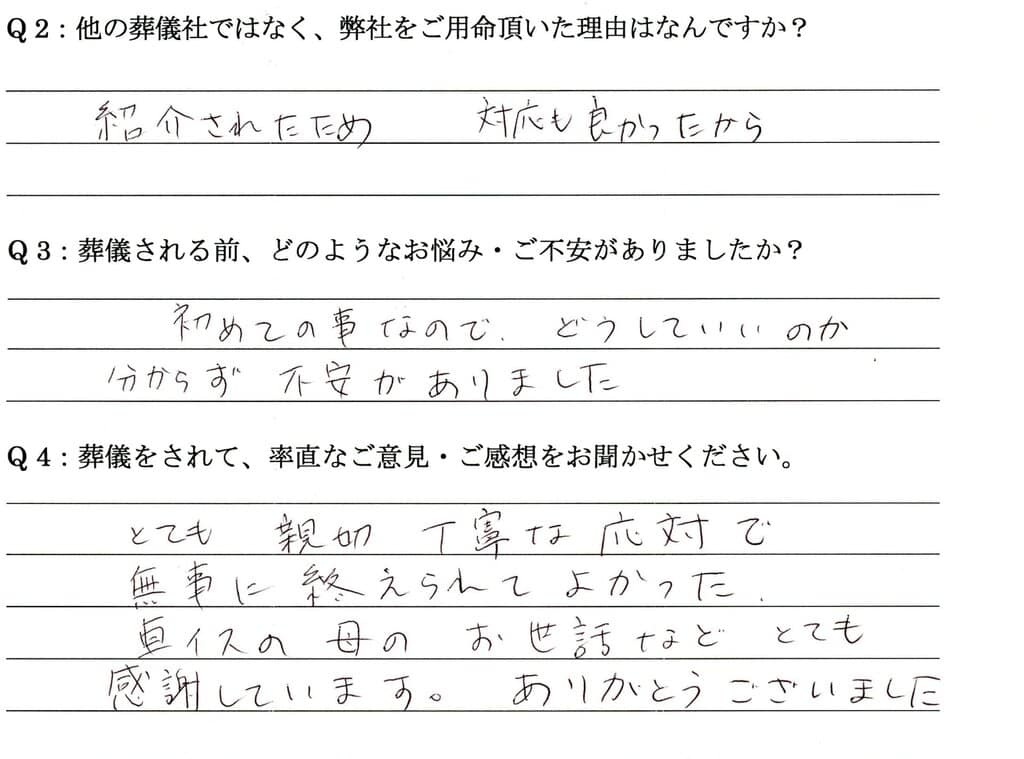 Q2：他の葬儀社ではなく、弊社をご用命頂いた理由はなんですか？
紹介されたため　対応も良かったから
Q3：葬儀される前、どのようなお悩み・ご不安がありましたか？
初めての事なので、どうしていいのか
分からず 不安がありました
Q4：葬儀をされて、率直なご意見・ご感想をお聞かせください。
とても 親切 丁寧な 応対で
無事に 終えられて よかった。
車イスの 母の お世話など とても
感謝しています。 ありがとうございました